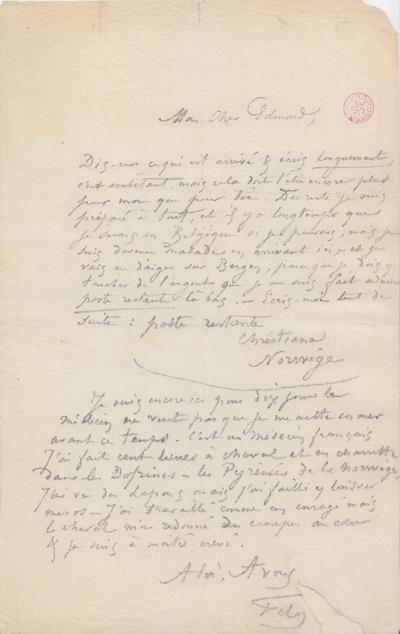 Mon Cher Edmond,
Dis-moi ce qui est arrivé & écris longuement,
c'est embêtant, mais cela doit l'être encore plus
pour moi que pour toi. Du reste je suis
préparé à tout, et il y a longtemps que
je serais en Belgique si je pouvais, mais je
suis devenu malade en arrivant ici et je
vais me diriger sur Bergen, parce que je dois y
toucher de l'argent que je me suis fait adresser
poste restante là bas. Ecris-moi tout de
suite : poste restante
Christiana
Norwège
Je suis encore ici pour dix jours le
médecin ne veut pas que je me mette en mer
avant ce temps. C'est un médecin français
J'ai fait cent lieues à cheval et en charrette
dans les Dofrines - les Pyrénées de la Norwège,
J'ai vu des Lapons mais j'ai failli y laisser
mes os - J'ai travaillé comme un enragé mais
le cheval m'a redonné des crampes au cœur
& je suis à moitié crevé.
A toi, A vous
Fély